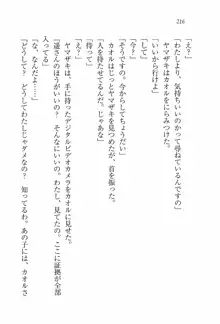 216
「わたしより、気持ちいいのかって尋ねているんですの」
「いいから行けよ」
ヤマザキはカオルをにらみつけた。
「え？」
「そうですの。今からしてちょうだい」
カオルはじっとヤマザキを見つめ、首を振った。
「人を待たせてる。じゃあな」
「待って」
ヤマザキは、手に持ったデジタルビデオカメラをカオルに見せた。
「道くんのほうがいいの？　そんなにいいの？　ここに証拠が全部
入ってる」
「な、なんだよ……」
「どうして？　どうしてわたしじゃダメなの？　知ってるわ。あの子には、カオルさ